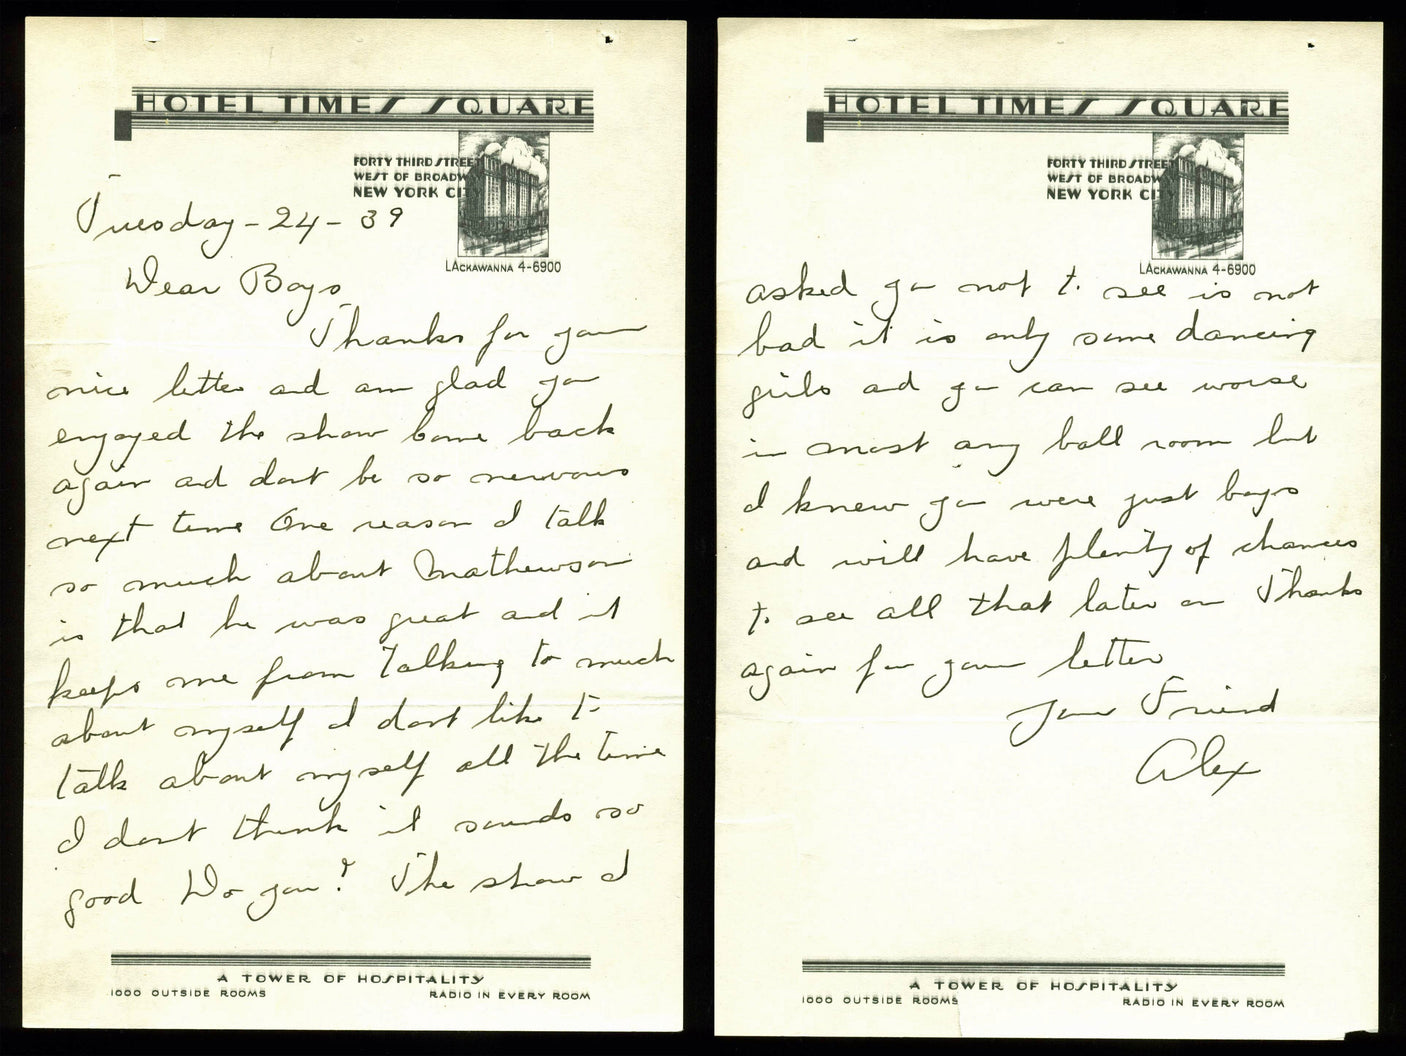 HOTEL TIMES SQUARE
FORTY THIRD STREET
WEST OF BROADW
NEW YORK CITY
LACKAWANNA 4-6900
Tuesday - 24 - 39
Dear Boys
Thanks for your
nice letter and am glad you
enjoyed the show come back
again and dont be so nervous
next time One reason I talk
so much about Mathewson
is that he was great and it
keeps me from talking to much
about myself I dont like to
talk about myself all the time
I dont think it sounds so
good Do you? The show I
A TOWER OF HOSPITALITY
1000 OUTSIDE ROOMS RADIO IN EVERY ROOM
HOTEL TIMES SQUARE
FORTY THIRD STREET
WEST OF BROADW
NEW YORK CIT
LACKAWANNA 4-6900
asked you not to see is not
bad it is only some dancing
girls and you can see worse
in most any ball room but
I knew you were just boys
and will have plenty of chances
to see all that later on Thanks
again for your letter
Your Friend
Alex
A TOWER OF HOSPITALITY
1000 OUTSIDE ROOMS RADIO IN EVERY ROOM